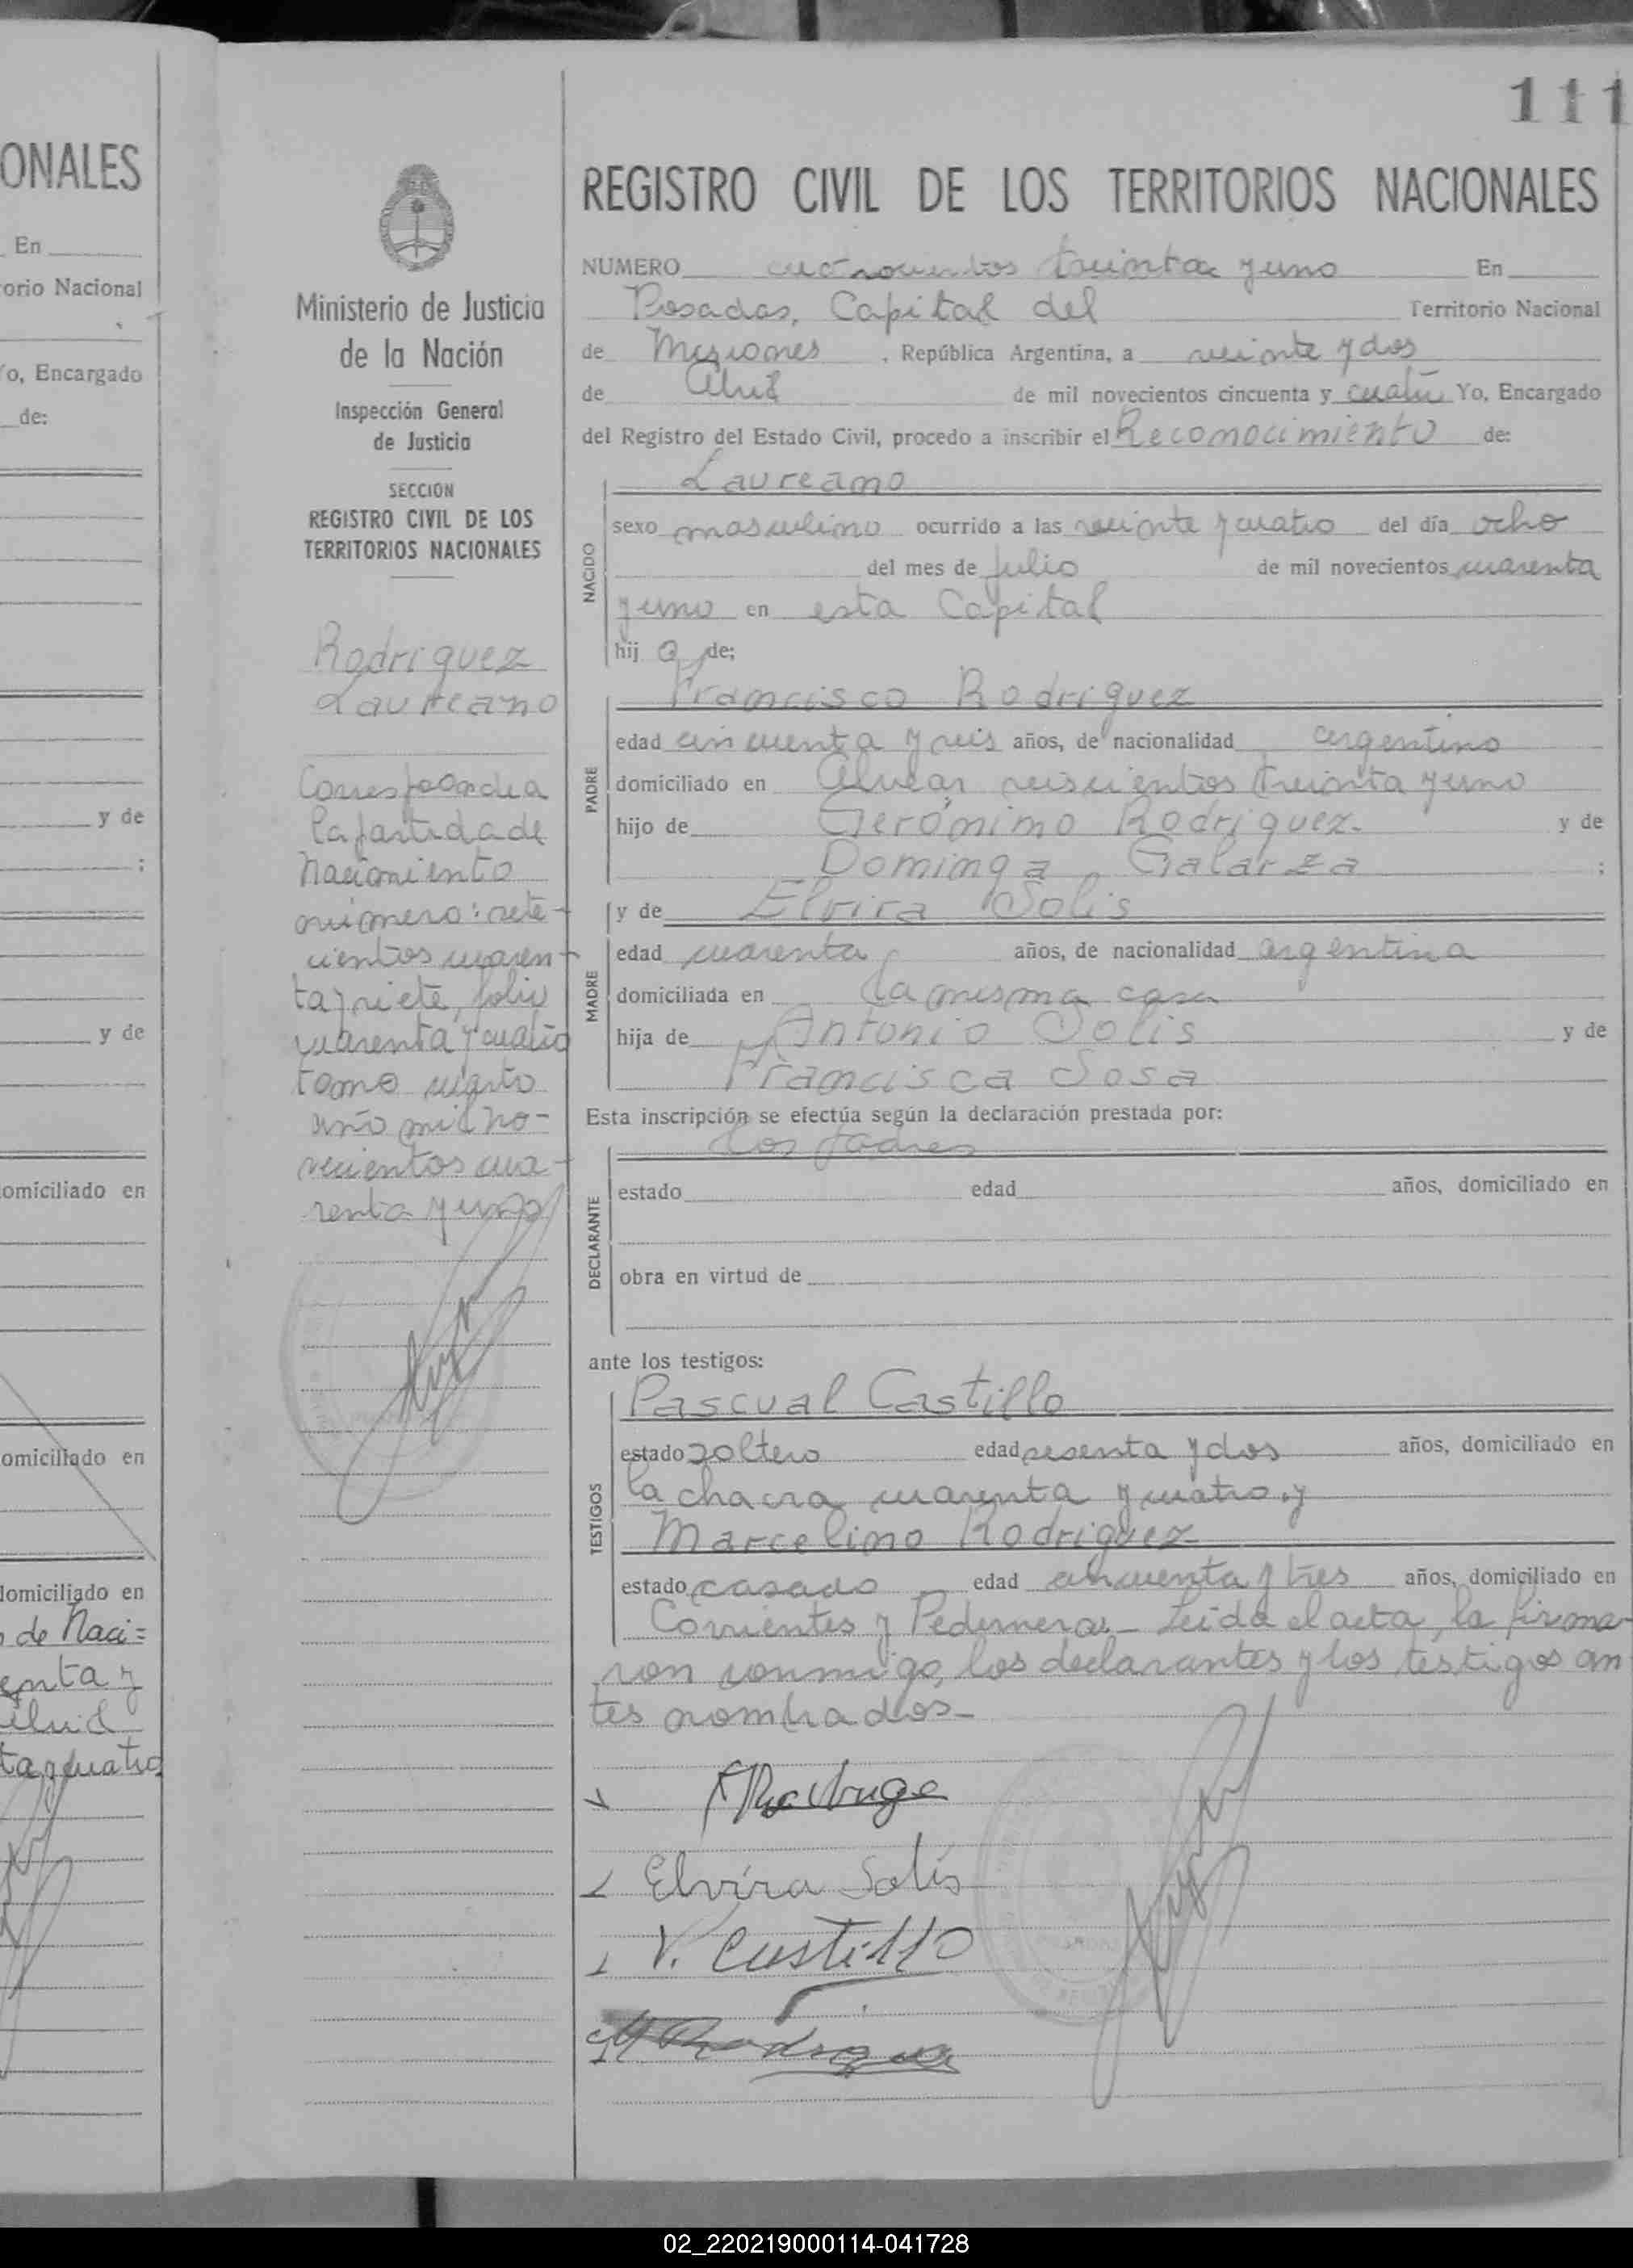 ONALES
En
orio Nacional
Yo, Encargado
de:
y de
;
y de
omiciliado en
omiciliado en
domiciliado en
de Naci=
enta y
ta y cuatro
111
Ministerio de Justicia
de la Nación
Inspección General
de Justicia
SECCION
REGISTRO CIVIL DE LOS
TERRITORIOS NACIONALES
Rodriguez
Laureano
Corresponde a
la partida de
Nacimiento
número: sete-
cientos cuaren-
ta y siete, folio
cuarenta y cuatro
tomo cuarto
año mil no-
vecientos cua-
renta y uno
REGISTRO CIVIL DE LOS TERRITORIOS NACIONALES
NUMERO cuatrocientos treinta y uno En
Posadas, Capital del Territorio Nacional
de Misiones, República Argentina, a veinte y dos
de Abril de mil novecientos cincuenta y cuatro Yo, Encargado
del Registro del Estado Civil, procedo a inscribir el Reconocimiento de:
Laureano
NACIDO
sexo masculino ocurrido a las veinte y cuatro del día ocho
del mes de Julio de mil novecientos cuarenta
y uno en esta Capital
hij o de;
Francisco Rodriguez
PADRE
edad cincuenta y seis años, de nacionalidad argentino
domiciliado en Alvear seiscientos treinta y uno
hijo de Gerónimo Rodriguez y de
Dominga Galarza ;
y de Elvira Solis
MADRE
edad cuarenta años, de nacionalidad argentina
domiciliada en la misma casa
hija de Antonio Solis y de
Francisca Sosa
Esta inscripción se efectúa según la declaración prestada por:
los padres
DECLARANTE
estado edad años, domiciliado en
obra en virtud de
ante los testigos:
Pascual Castillo
TESTIGOS
estado soltero edad sesenta y dos años, domiciliado en
la chacra cuarenta y cuatro. y
Marcelino Rodriguez
estado casado edad cincuenta y tres años, domiciliado en
Corrientes y Pedernera - Leida el acta, la firma-
ron conmigo, los declarantes y los testigos an
tes nombrados-
Elvira Solis
V. Castillo
M Rodriguez
02_220219000114-041728